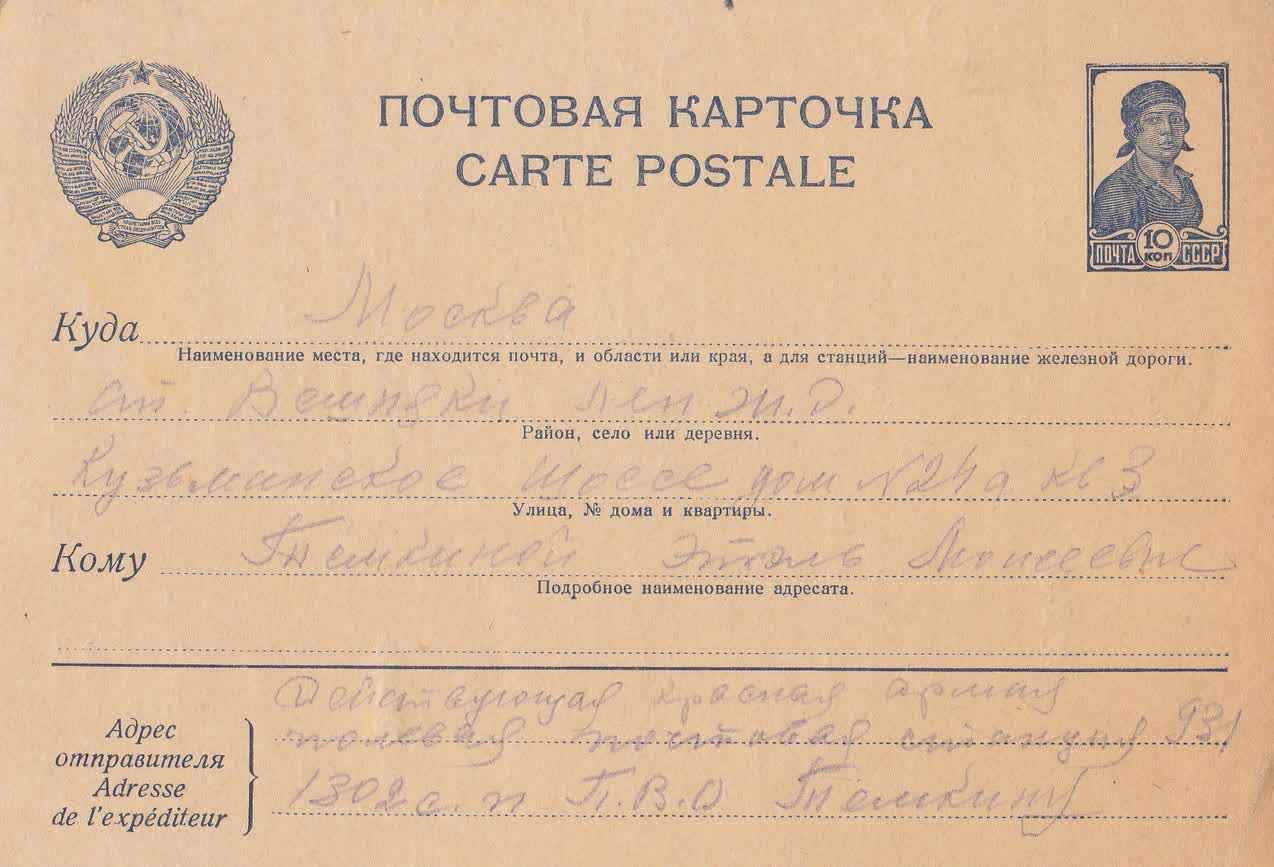 ПОЧТОВАЯ КАРТОЧКА
CARTE POSTALE
ПОЧТА 10 КОП СССР
Куда Москва
Наименование места, где находится почта, и области или края, а для станций—наименование железной дороги.
ст. Вешняки Лен ж.д.
Район, село или деревня.
Кузьминское шоссе дом №24а кв 3
Улица, № дома и квартиры.
Кому Темкиной Этель Моисеевне
Подробное наименование адресата.
Действующая красная армия
полевая почтовая станция 931
1302 с.п П.В.О Темкину
Адрес
отправителя
Adresse
de l'expéditeur